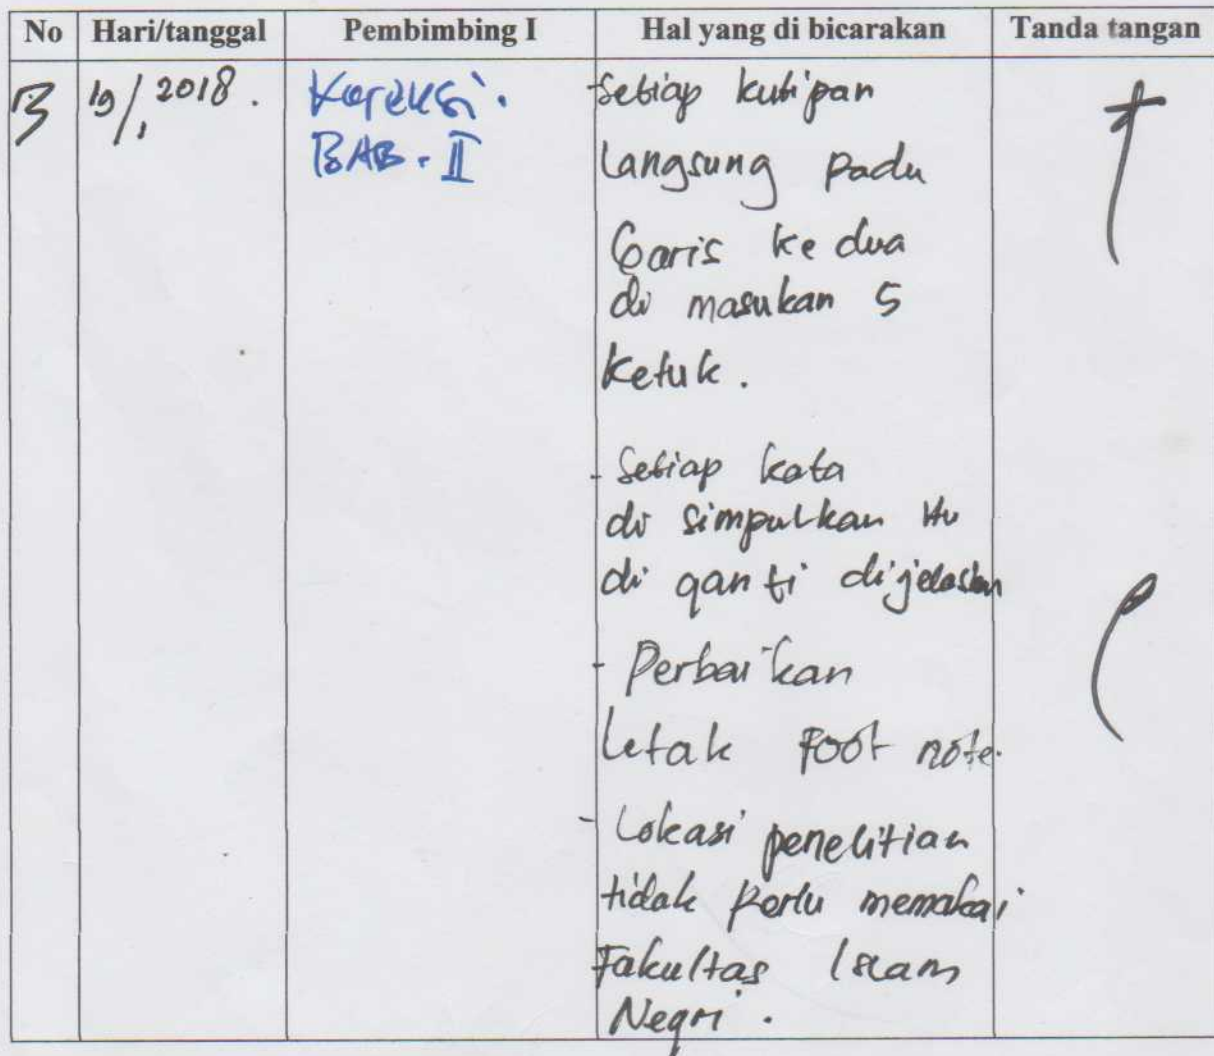 No Hari/tanggal Pembimbing I Hal yang di bicarakan Tanda tangan
19/1 2018.
Koreksi.
BAB. II
- Setiap kutipan
langsung pada
Garis ke dua
di masukan 5
ketuk.
- Setiap kata
di simpulkan itu
di ganti dijelaskan
- Perbaikan
letak Foot note.
- Lokasi penelitian
tidak perlu memakai
Fakultas Islam
Negri.